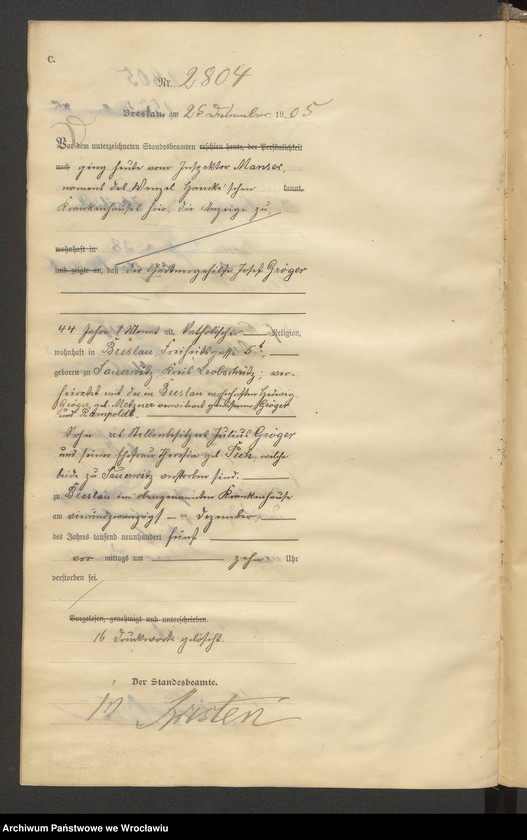 C.
Nr. 2804
Breslau, am 26 Dezember 1905
Vor dem unterzeichneten Standesbeamten erschien heute, der Persönlichkeit
nach ging heute vom Inspektor Manser,
namens des Wenzel Hancke'schen kannt,
Krankenhauses hier, die Anzeige zu,
wohnhaft in
und zeigte an, daß der Gärtnergehilfe Josef Gröger
44 Jahre 1 Monat alt, katholischer Religion,
wohnhaft in Breslau
geboren zu Sauerwitz Kreis Leobschütz; ver-
heiratet mit der in Breslau wohnhaften Hedwig
Gröger, geb. Metzner verwitwet gewesenen Gröger
und
Sohn des Stellenbesitzers Julius Gröger
und seiner Ehefrau Theresia geb. welche
beide zu Sauerwitz verstorben sind.
zu Breslau im obengenannten Krankenhause
am vierundzwanzigsten Dezember
des Jahres tausend neunhundert fünf
vor mittags um zehn Uhr
verstorben sei.
Vorgelesen, genehmigt und unterschrieben.
16 Druckworte gelöscht.
Der Standesbeamte.
Archiwum Państwowe we Wrocławiu